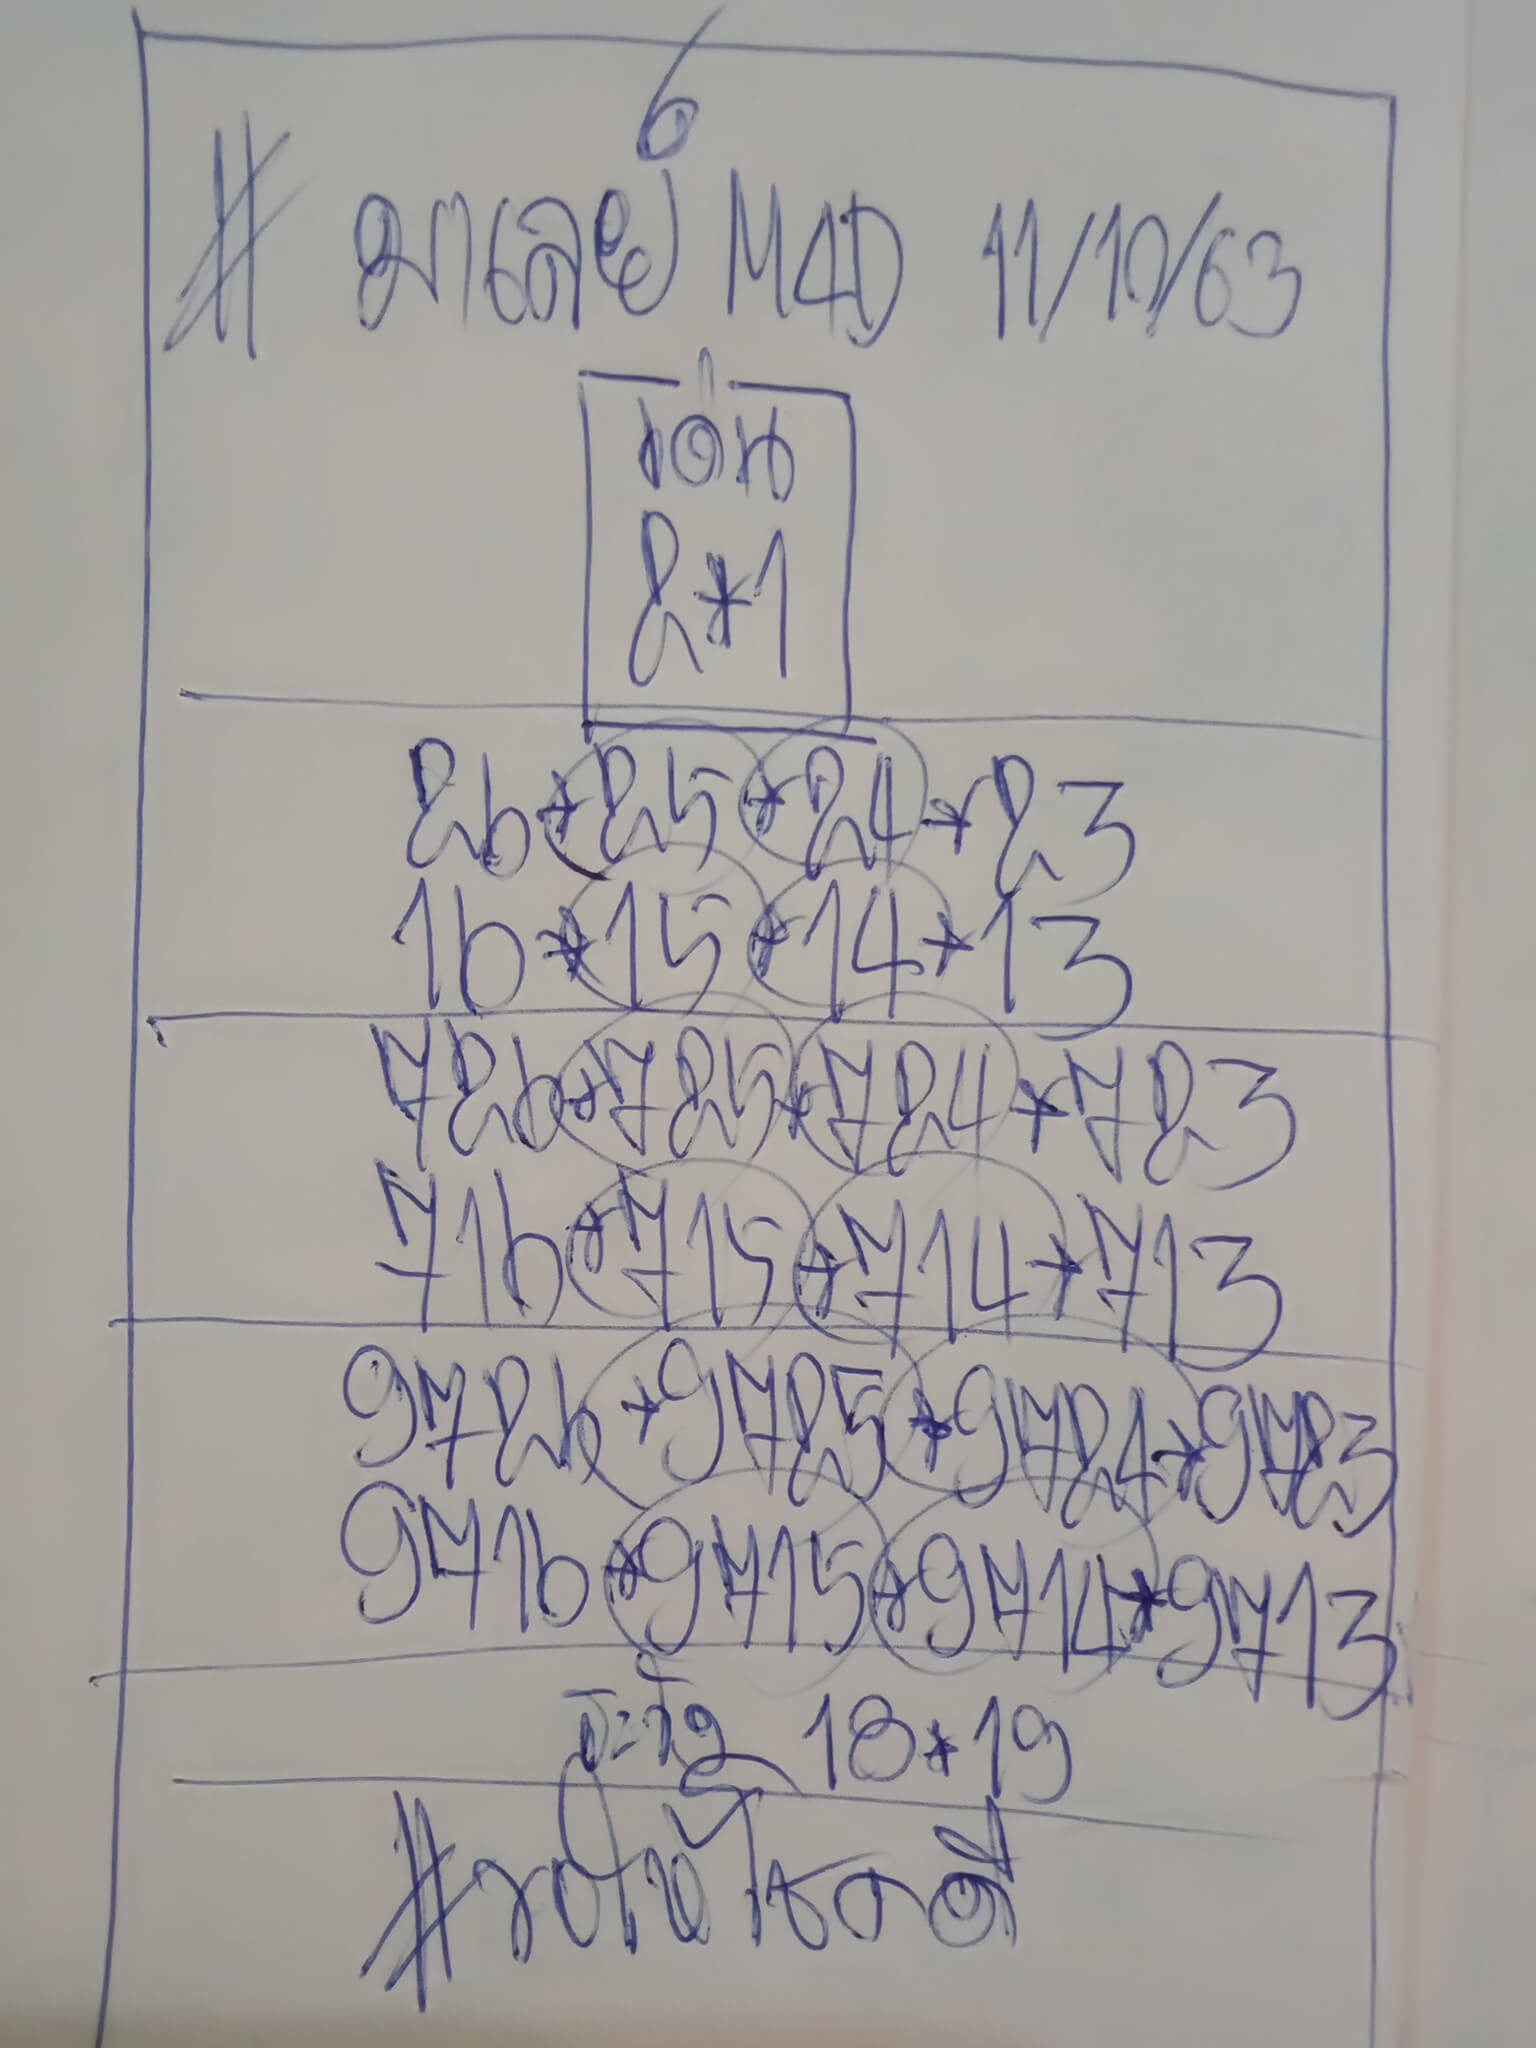 6
# มาเลย์ M4D 11/10/63
เด่น
2*1
26*25*24*23
16*15*14*13
726*725*724*723
716*715*714*713
9726*9725*9724*9723
9716*9715*9714*9713
ระวัง 18*19
#ขอให้โชคดี